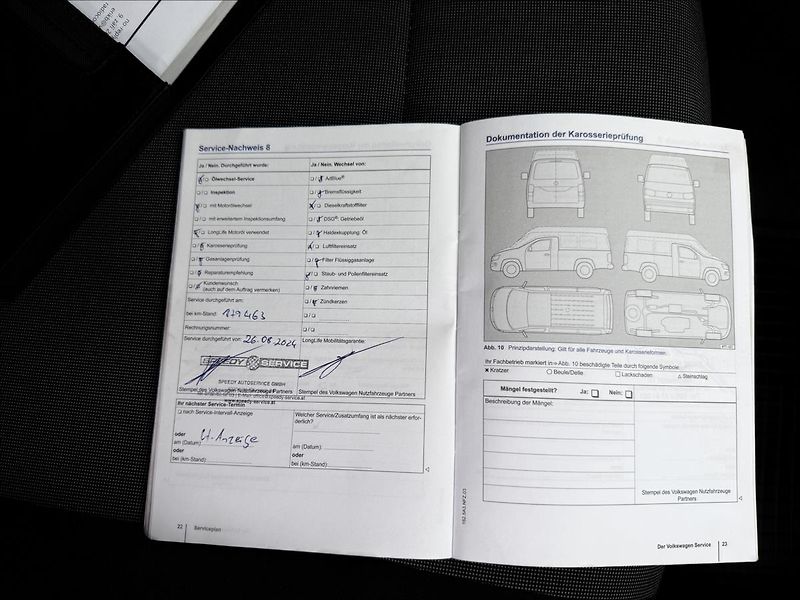 Service-Nachweis 8
Ja / Nein. Durchgeführt wurde:
Ölwechsel-Service
Inspektion
mit Motorölwechsel
mit erweitertem Inspektionsumfang
LongLife Motoröl verwendet
Karosserieprüfung
Gasanlagenprüfung
Reparaturempfehlung
Kundenwunsch
(auch auf dem Auftrag vermerken)
Service durchgeführt am:
bei km-Stand: 179463
Rechnungsnummer:
Service durchgeführt von: 26.08.2024
SPEEDY SERVICE
SPEEDY AUTOSERVICE GMBH
Stempel des Volkswagen Nutzfahrzeuge Partners
www.speedy-service.at
Ja / Nein. Wechsel von:
AdBlue®
Bremsflüssigkeit
Dieselkraftstofffilter
DSG®: Getriebeöl
Haldexkupplung: Öl
Luftfiltereinsatz
Filter Flüssiggasanlage
Staub- und Pollenfiltereinsatz
Zahnriemen
Zündkerzen
LongLife Mobilitätsgarantie:
Stempel des Volkswagen Nutzfahrzeuge Partners
Ihr nächster Service-Termin
nach Service-Intervall-Anzeige
oder
am (Datum): lt. Anzeige
oder
bei (km-Stand)
Welcher Service/Zusatzumfang ist als nächster erfor-
derlich?
am (Datum)
oder
bei (km-Stand)
22 Serviceplan
Dokumentation der Karosserieprüfung
Abb. 10 Prinzipdarstellung: Gilt für alle Fahrzeuge und Karosserieformen.
Ihr Fachbetrieb markiert in ⇒ Abb. 10 beschädigte Teile durch folgende Symbole:
× Kratzer ○ Beule/Delle □ Lackschaden △ Steinschlag
Mängel festgestellt? Ja: Nein:
Beschreibung der Mängel:
Stempel des Volkswagen Nutzfahrzeuge
Partners
Der Volkswagen Service 23